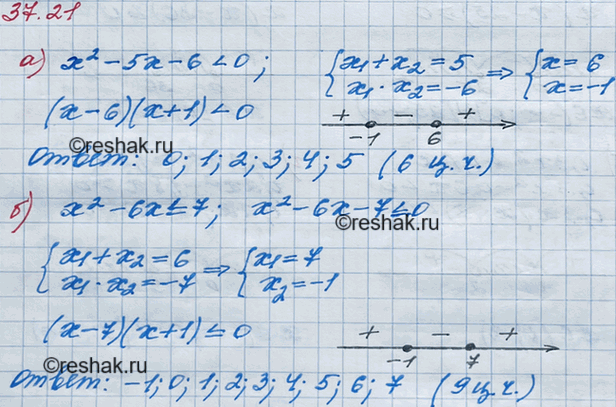 37.21
а) x² - 5x - 6 < 0; { x₁ + x₂ = 5 ⇒ { x = 6
x₁ · x₂ = -6 x = -1
(x - 6)(x + 1) < 0 + - +
©reshak.ru -1 6
Ответ: 0; 1; 2; 3; 4; 5 (6 ц.ч.)
б) x² - 6x ≤ 7; x² - 6x - 7 ≤ 0
©reshak.ru
{ x₁ + x₂ = 6 ⇒ { x₁ = 7
x₁ · x₂ = -7 x₂ = -1
(x - 7)(x + 1) ≤ 0 + - +
©reshak.ru -1 7
Ответ: -1; 0; 1; 2; 3; 4; 5; 6; 7 (9 ц.ч.)